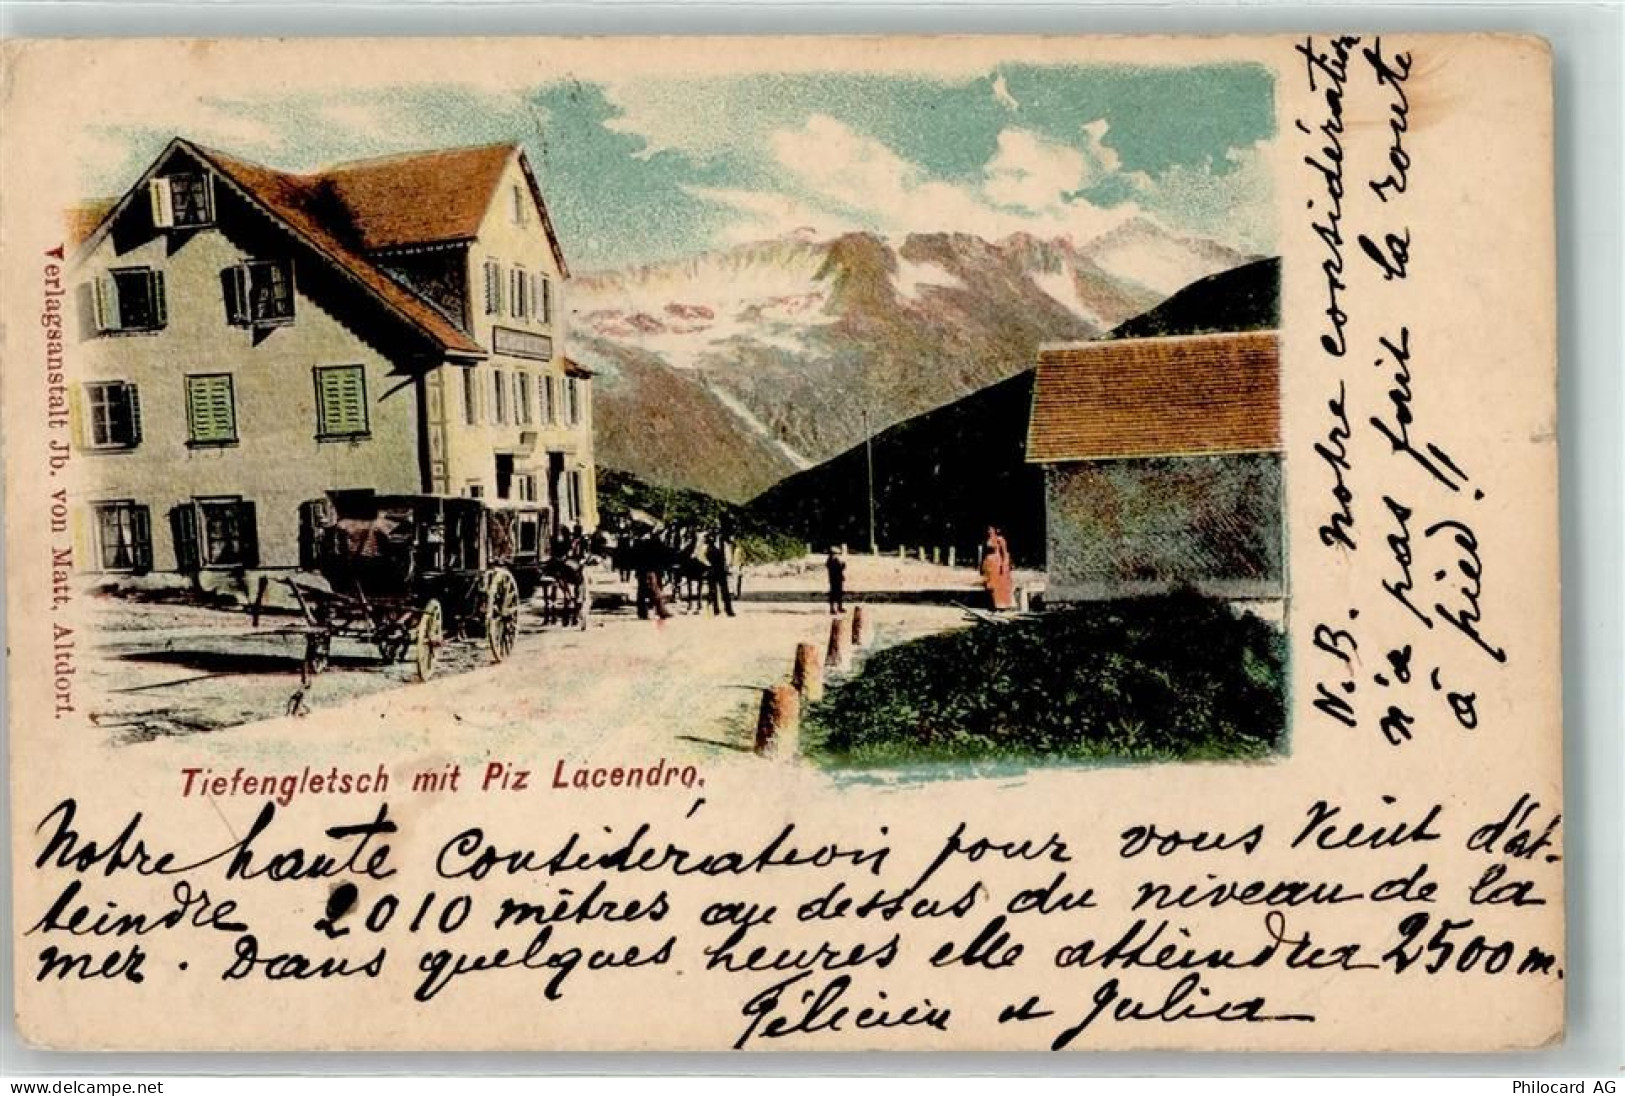 Verlagsanstalt Jb. von Matt, Altdorf.
Tiefengletsch mit Piz Lacendro.
Notre haute considération pour vous vient d'at-
teindre 2010 mètres au dessus du niveau de la
mer. Dans quelques heures elle atteindra 2500 m.
Félicien et Julia
N.B. Notre considération
n'a pas fait la route
à pied!!
delcampe.net
Philocard AG